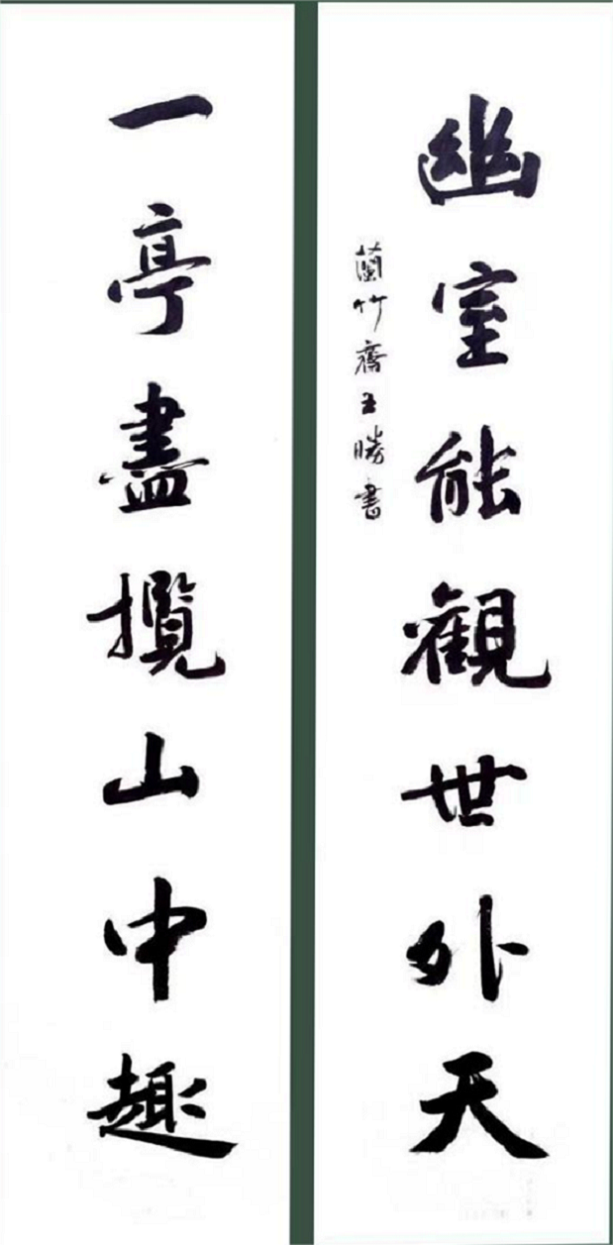 幽室能觀世外天
蘭竹齋王勝書
一亭盡攬山中趣